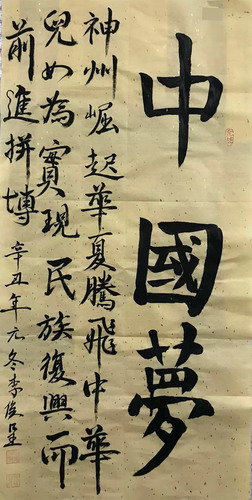 中國夢
神州崛起華夏騰飛中華
兒女為實現民族復興而
前進拼搏
辛丑年元冬李俊